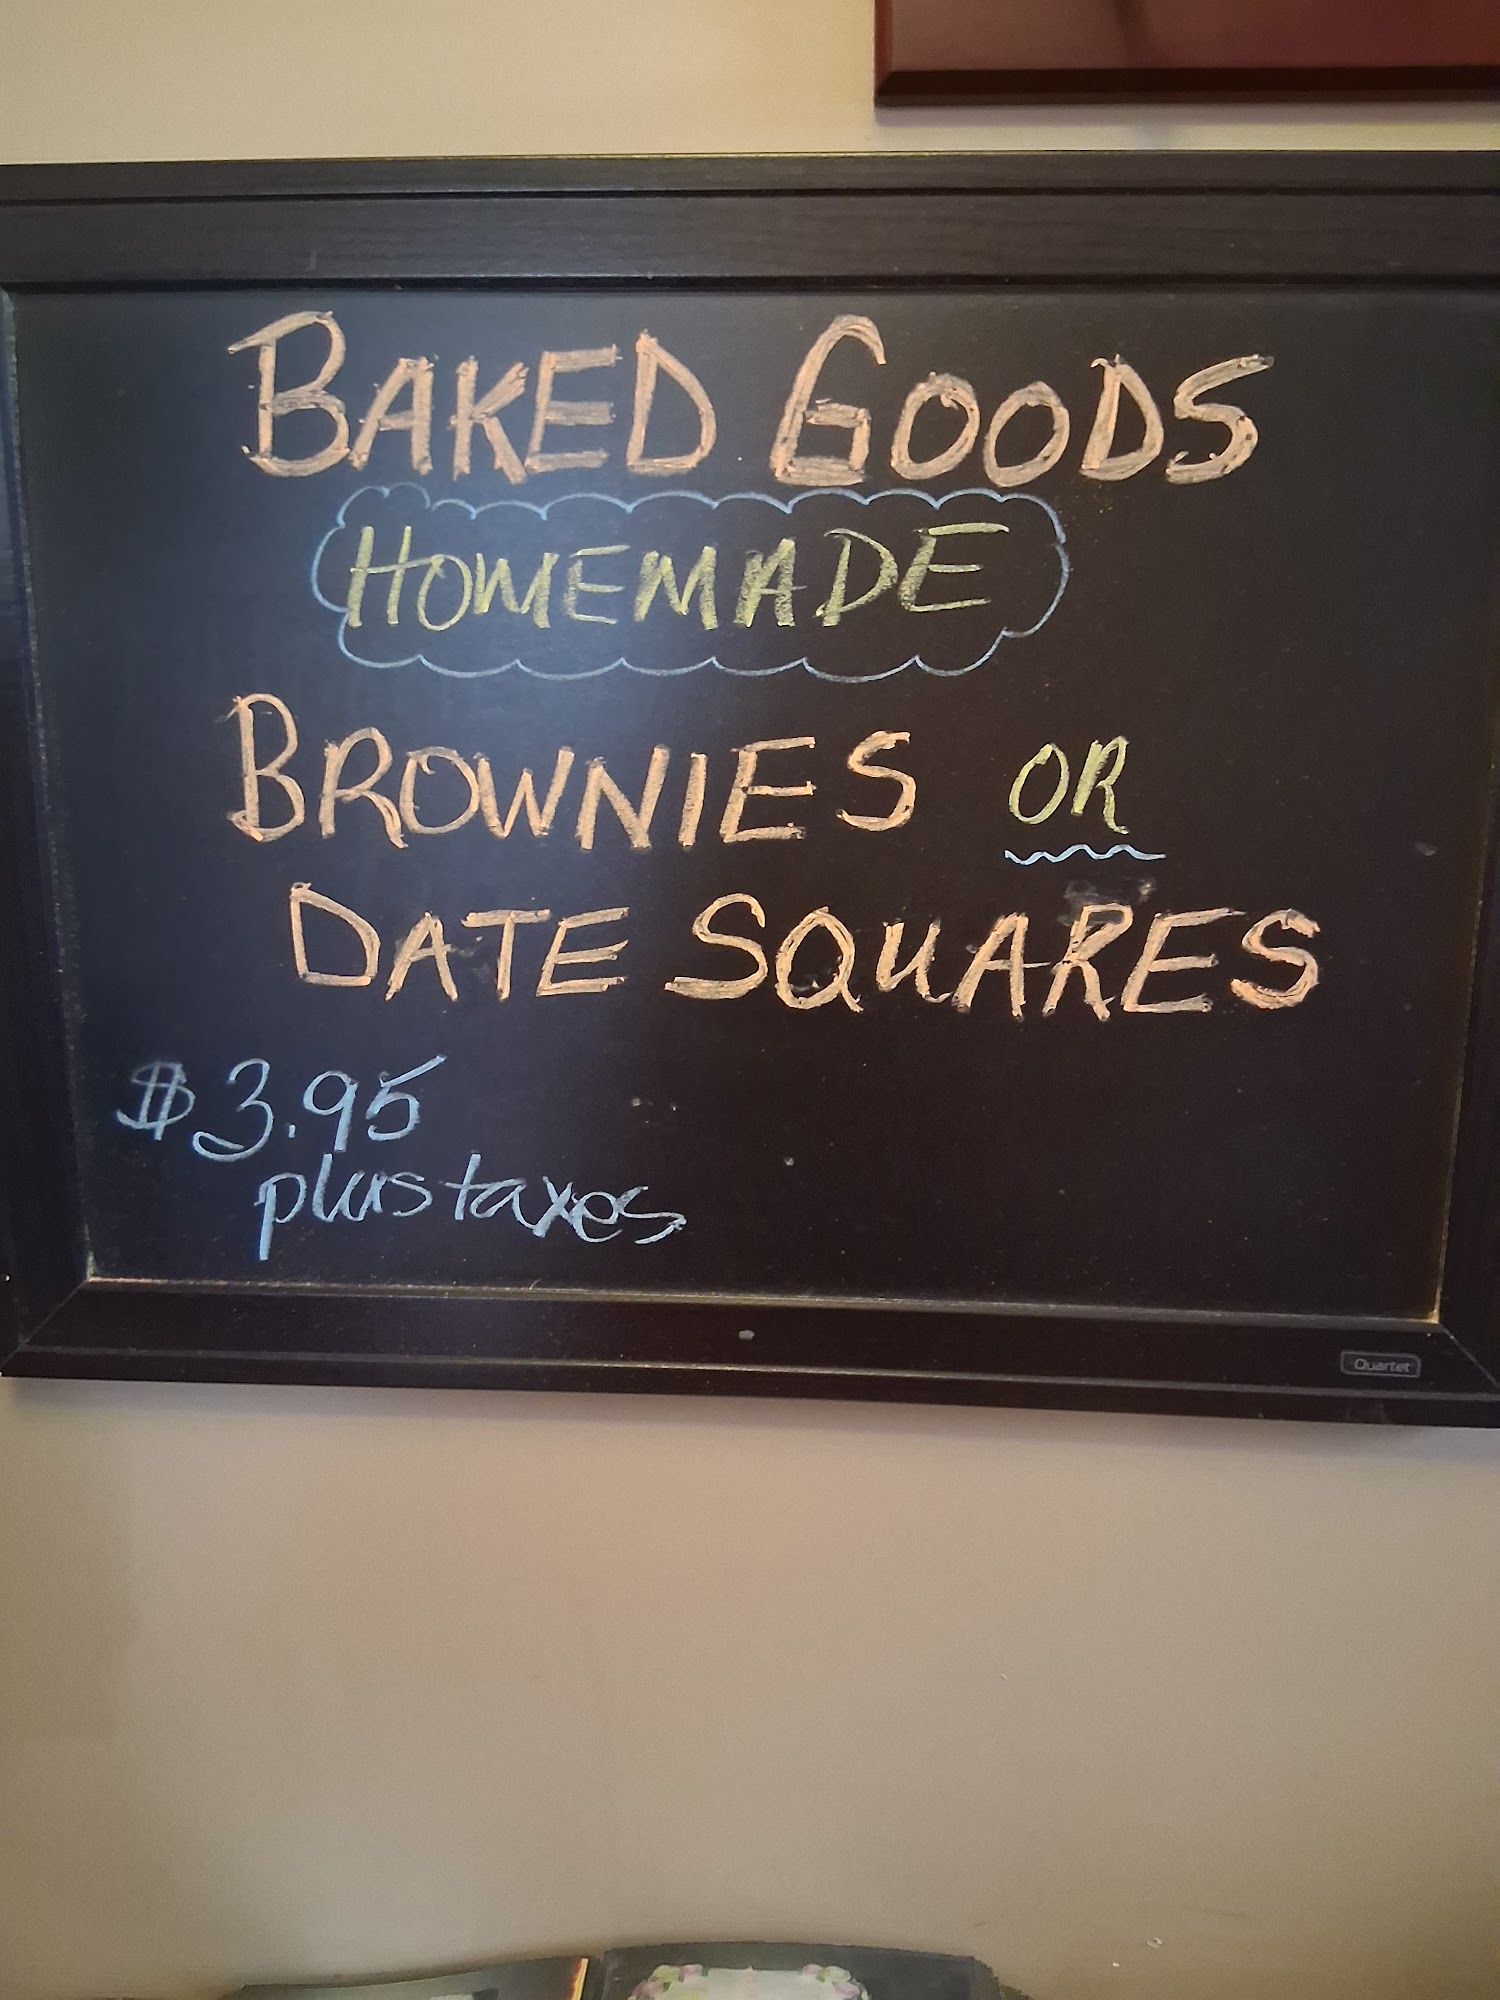 BAKED GOODS
HOMEMADE
BROWNIES OR
DATE SQUARES
$3.95
plus taxes
Quartet